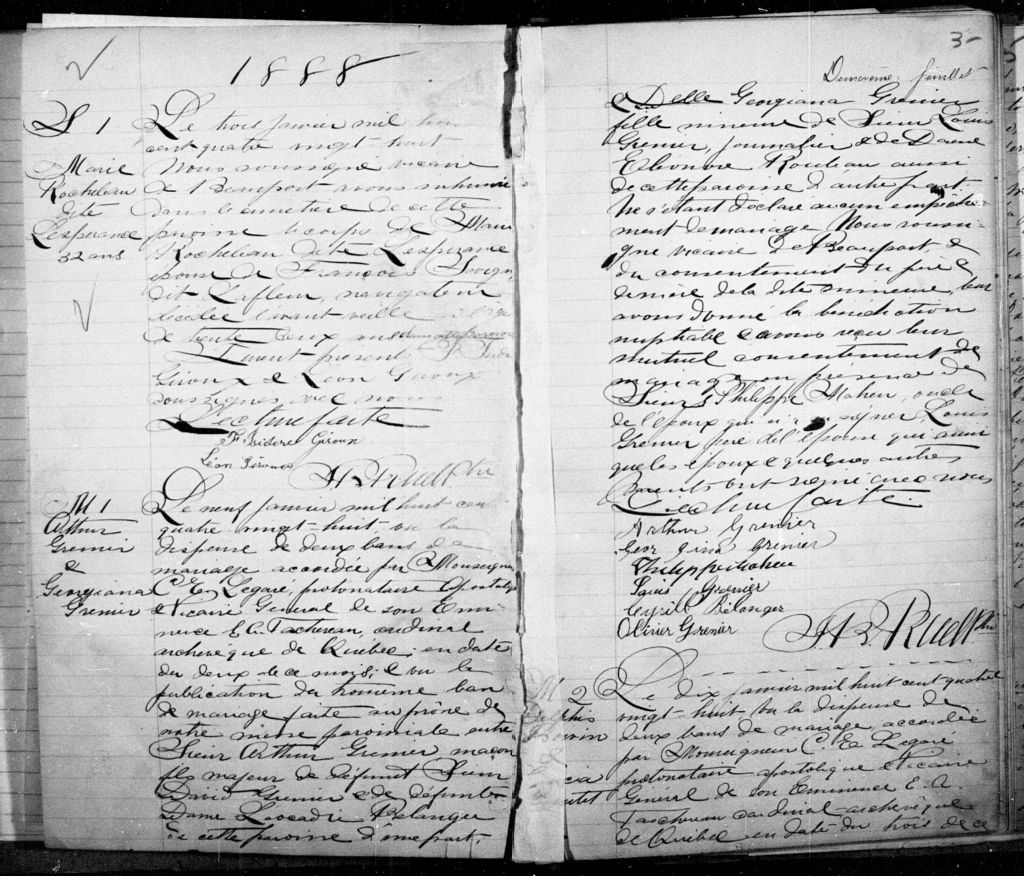 1888
S 1
Marie
Rocheleau
dite
Lesperance
32 ans
Le trois janvier mil huit
cent quatre vingt-huit
Nous soussigné vicaire
de Beauport avons inhumé
dans le cimetière de cette
paroisse le corps de Marie
Rocheleau dite Lesperance
épouse de François
dit Lafleur, navigateur
décédée l'avant veille
de trente deux ans dans cette paroisse
Furent presents F. Isidore
Giroux & Léon Giroux
soussignés avec nous
Lecture faite
F. Isidore Giroux
Léon Giroux
H. B. Ruel Ptre
M 1
Arthur
Grenier
&
Georgiana
Grenier
Le neuf janvier mil huit cent
quatre vingt-huit vu la
dispense de deux bans de
mariage accordée par Monseigneur
C. E. Legaré, protonotaire apostolique
& Vicaire Général de son Emi-
nence E. A. Taschereau, cardinal
archevêque de Québec, en date
du deux de ce mois, & vu la
publication du troisième ban
de mariage faite au prône de
notre messe paroissiale entre
Sieur Arthur Grenier maçon
fils majeur de défunt Sieur
David Grenier & de défunte
Dame Leocadie Belanger
de cette paroisse d'une part,
3-
Deuxième feuillet
& Delle Georgiana Grenier
fille mineure de Sieur Louis
Grenier, journalier & de Dame
Eleonore Rouleau aussi
de cette paroisse d'autre part.
Ne s'étant déclaré aucun empêche-
ment de mariage Nous soussi-
gné vicaire de Beauport, &
du consentement du père &
de mère de la dite mineure, leur
avons donné la bénédiction
nuptiale & avons reçu leur
mutuel consentement de
mariage en présence de
Sieurs Philippe Maheu, oncle
de l'époux qui a signé, Louis
Grenier père de l'épouse qui ainsi
que les époux & quelques autres
parents ont signé avec nous
Lecture faite.
Arthur Grenier
Georgina Grenier
Philippe Maheu
Louis Grenier
Cyrille Bélanger
Olivier Grenier
H. B. Ruel Ptre
M 2
Le dix janvier mil huit cent quatre
vingt-huit vu la dispense de
deux bans de mariage, accordée
par Monseigneur C. E. Legaré
protonotaire apostolique & vicaire
Général de son Eminence E. A.
Taschereau cardinal archevêque
de Québec en date du trois de ce